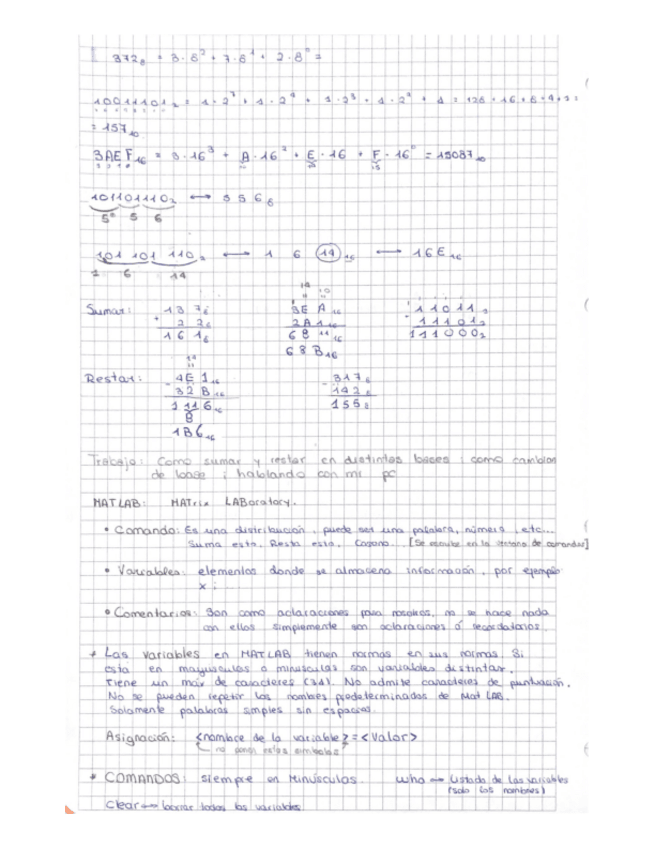 372₈ = 3·8² + 7·8¹ + 2·8⁰ =
10011101₂ = 1·2⁷ + 1·2⁴ + 1·2³ + 1·2² + 1 = 128 + 16 + 8 + 4 + 1 =
= 157₁₀
3AEF₁₆ = 3·16³ + A·16² + E·16 + F·16⁰ = 15087₁₀
101101110₂ ↔ 556₈
5 5 6
101 101 110₂ ↔ 1 6 (14)₁₆ ↔ 16E₁₆
1 6 14
Sumar: 137₈ 3EA₁₆ 11011₂
+ 22₈ 2A1₁₆ 11101₂
161₈ 68 11₁₆ 111000₂
68B₁₆
Restar: 4E1₁₆ 317₈
- 32B₁₆ - 142₈
1 11 6₁₆ 155₈
B
1B6₁₆
Trabajo: Como sumar y restar en distintas bases; como cambian
de base; hablando con mi pc
MATLAB: MATrix LABoratory.
• Comando: Es una distribucion, puede ser una palabra, número, etc...
Suma esto, Resta esto, [Se escribe en la ventana de comandos]
• Variables: elementos donde se almacena información, por ejemplo
x;
• Comentarios: Son como aclaraciones para nosotros, no se hace nada
con ellos simplemente son aclaraciones ó recordatorios.
* Las variables en MATLAB tienen normas en sus normas Si
esta en mayusculas o minusculas son variables distintas.
Tiene un max de caracteres (31). No admite caracteres de puntuación.
No se pueden repetir los nombres predeterminados de MatLAB.
Solamente palabras simples sin espacios.
Asignación: <nombre de la variable> = <Valor>
no poner estos simbolos
* COMANDOS: siempre en Minúsculas. who → Listado de las variables
(solo los nombres)
Clear → borrar todas las variables